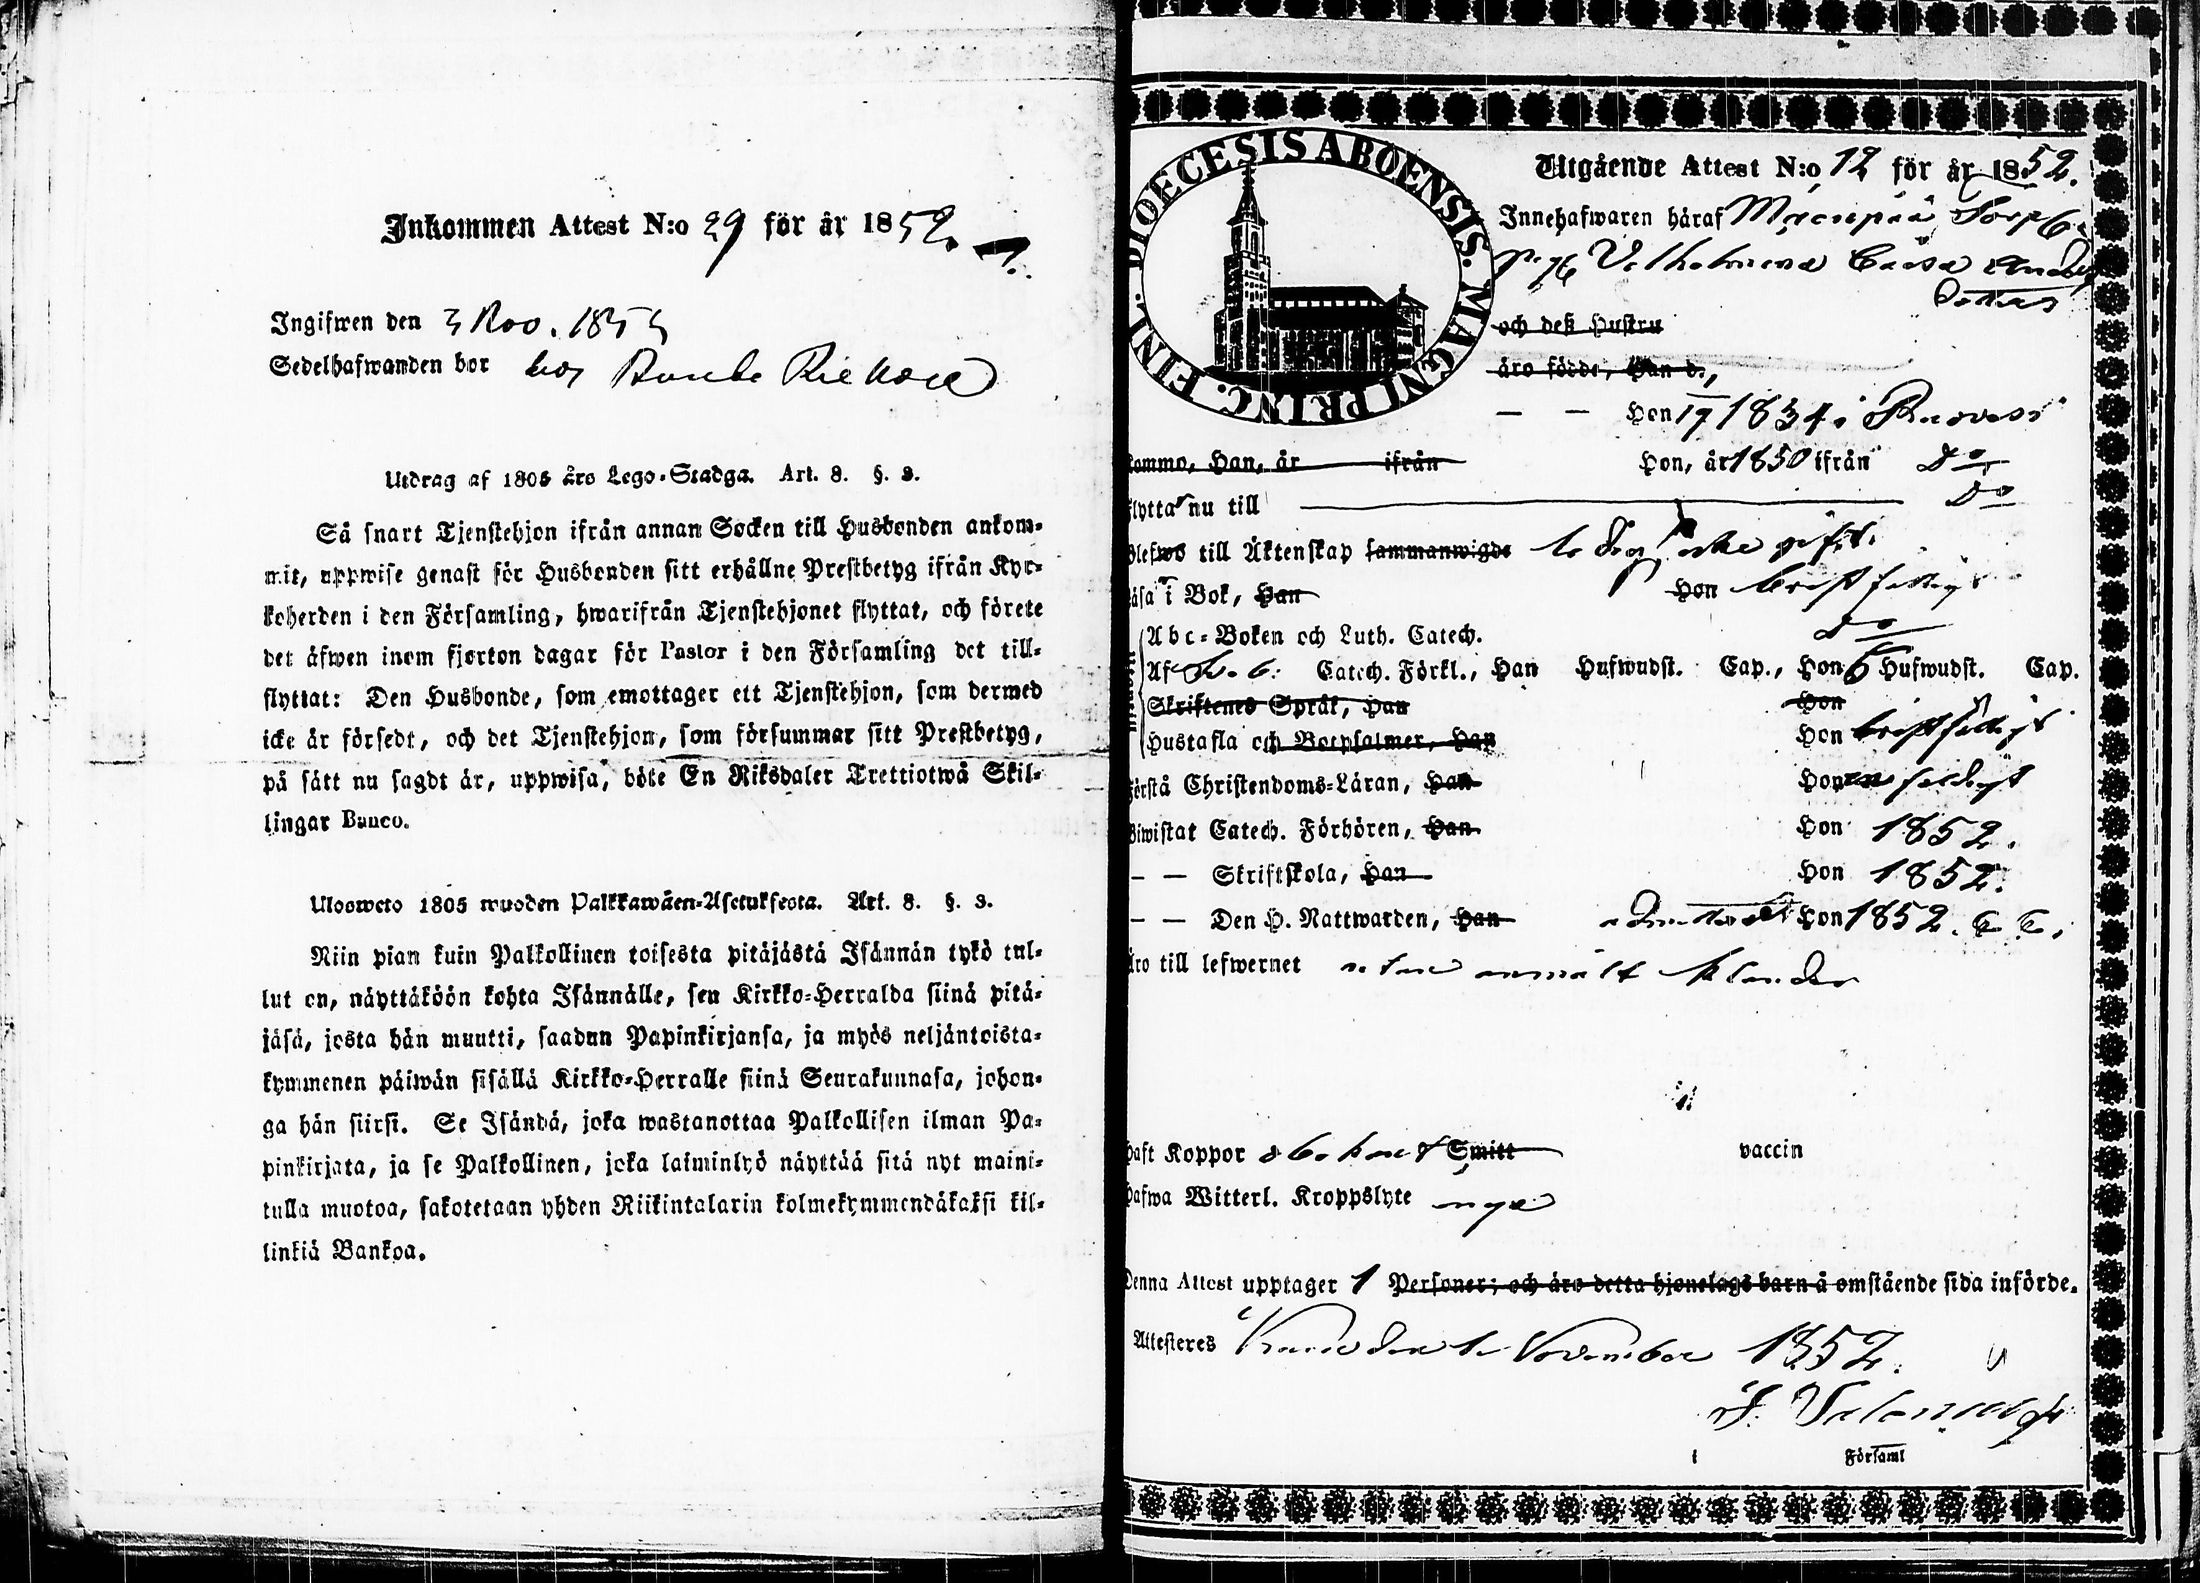 Inkommen Attest N:o 29 för år 1852.
Ingifwen den 3 Nov. 185
Sedelhafwanden bor hos
Utdrag af 1805 års Lego-Stadga. Art. 8. §. 3.
Så snart Tjenstehjon ifrån annan Socken till Husbonden ankom-
mit, uppwise genast för Husbonden sitt erhållne Prestbetyg ifrån Kyr-
koherden i den Församling, hwarifrån Tjenstehjonet flyttat, och förete
det äfwen inom fjorton dagar för Pastor i den Församling det till-
flyttat: Den Husbonde, som emottager ett Tjenstehjon, som dermed
icke är försedt, och det Tjenstehjon, som försummar sitt Prestbetyg,
på sätt nu sagdt är, uppwisa, böte En Riksdaler Trettiotwå Skil-
lingar Banco.
Ulosweto 1805 wuoden Palkkawäen-Asetuksesta. Art. 8. §. 3.
Niin pian kuin Palkollinen toisesta pitäjästä Isännän tykö tul-
lut on, näyttäköön kohta Isännälle, sen Kirkko-Herralda siinä pitä-
jäsä, josta hän muutti, saadun Papinkirjansa, ja myös neljäntoista-
kymmenen päiwän sisällä Kirkko-Herralle siinä Seurakunnasa, johon-
ga hän siirsi. Se Isändä, joka wastanottaa Palkollisen ilman Pa-
pinkirjata, ja se Palkollinen, joka laiminlyö näyttää sitä nyt maini-
tulla muotoa, sakotetaan yhden Riikintalarin kolmekymmendäkaksi kil-
linkiä Bankoa.
DIOECESIS ABOENSIS. MAGNI PRINC. FINL.
Utgående Attest N:o 12 för år 1852.
Innehafwaren häraf
pig Vilhelmina Caisa
dotter
och deß Hustru
äro födde, Han d.,
— — Hon 17 1834 i Ruovesi
kommo, Han, år ifrån Hon, år 1850 ifrån Do
flytta nu till Do
Blefwo till Äktenskap sammanwigde ledig, icke gift.
Läsa i Bok, Han Hon bristfälligt
Abc-Boken och Luth. Catech. Do
Af Sv. b. Catech. Förkl., Han Hufwudst. Cap., Hon 6 Hufwudst. Cap.
Skriftenes Språk, Han Hon
Hustafla och Botpsalmer, Han Hon bristfälligt
Förstå Christendoms-Läran, Han Hon enfaldigt
Biwistat Catech. Förhören, Han Hon 1852.
— — Skriftskola, Han Hon 1852.
— — Den H. Nattwarden, Han admitterad Hon 1852.
Äro till lefwernet utan anmält klander
Haft Koppor obekant Smitt vaccin
Hafwa Witterl. Kroppslyte inga
Denna Attest upptager 1 Personer; och äro detta hjonelags barn å omstående sida införde.
Attesteres den 1 November 1852.
i Församl